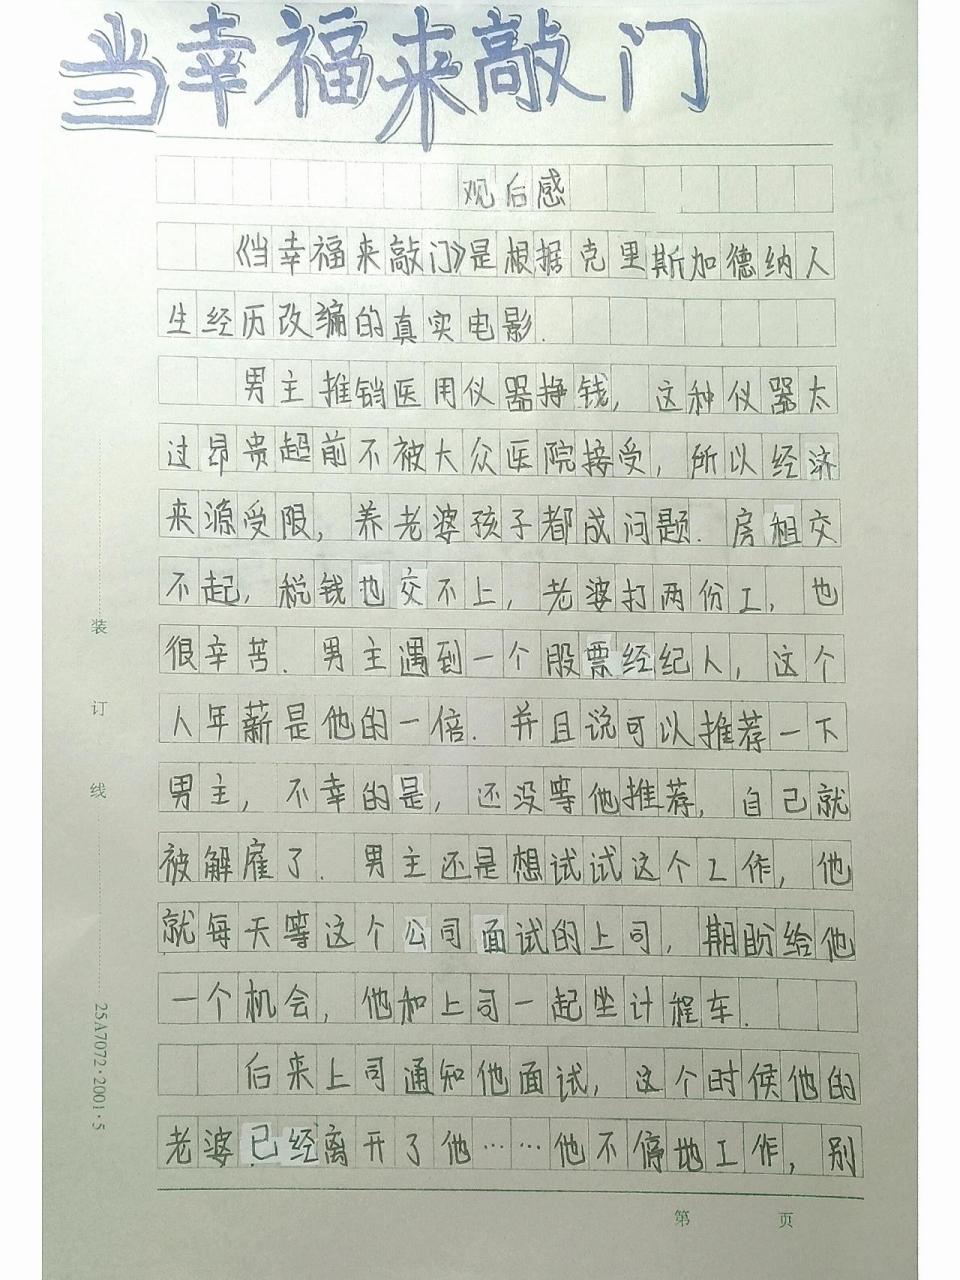 当幸福来敲门
观后感
《当幸福来敲门》是根据克里斯加德纳人
生经历改编的真实电影.
男主推销医用仪器挣钱，这种仪器太
过昂贵超前不被大众医院接受，所以经济
来源受限，养老婆孩子都成问题.房租交
不起，税钱也交不上，老婆打两份工，也
很辛苦.男主遇到一个股票经纪人，这个
人年薪是他的一倍.并且说可以推荐一下
男主，不幸的是，还没等他推荐，自己就
被解雇了.男主还是想试试这个工作，他
就每天等这个公司面试的上司，期盼给他
一个机会，他和上司一起坐计程车.
后来上司通知他面试，这个时候他的
老婆已经离开了他……他不停地工作，别
装
订
线
25A7072·2001·5
第 页